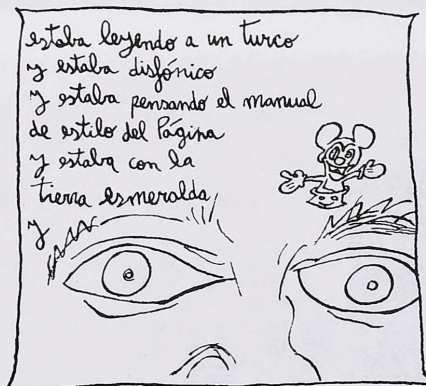 estaba leyendo a un turco
y estaba disfónico
y estaba pensando el manual
de estilo del Página
y estaba con la
tierra esmeralda
y